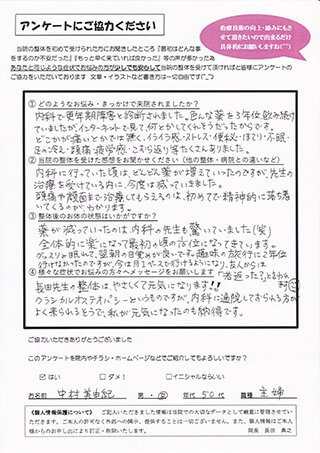 アンケートにご協力ください
治療技術の向上・励みにも
させて頂きたいので出来るだけ
具体的にお願いしますね(^^)
当院の整体を初めて受けられた方にお聞きしたところ「最初はどんな事
をするのか不安だった」「もっと早く来ていれば良かった」等の声が多かった為
あなたと同じような症状でお悩みの方が少しでも安心して当院の整体を受けて頂ければと皆様にアンケートの
ご協力をいただいております 文章・イラストなど書き方は一切自由です(^_^)
①どのようなお悩み・きっかけで来院されましたか?
内科で更年期障害と診断されました。色んな薬を3年位飲み続け
ていましたが、インターネットで見て、何とかしてくれそうだったからです。
どこかが痛いとかでは無く、イライラ感・ストレス・便秘・ほてり・不眠・
足の冷え・頭痛・疲労感・こむら返り等たくさんありました。
②当院の整体を受けた感想をお聞かせください(他の整体・病院との違いなど)
内科に行っていた頃は、どんどん薬が増えていったのですが、先生の
治療を受けている内に、今度は減っていきました。
頭痛や腹面まで治療してもらえるのは、初めてで・精神的に落ち着
いてくるのがわかります。
③整体後のお体の状態はいかがですか?
薬が減っていったのは、内科の先生も驚いていました(笑)
全体的に楽になって最初の頃の半位になってきています。
グッスリと眠れて、翌朝の目覚めが良いです。趣味の旅行に2年位
行けなかったのですが、今は月1ペースで行けるようになり、友人からは
④様々な症状でお悩みの方々へメッセージをお願いします
「若返った?」と言われ
ます
長田先生の整体は、やさしくて元気になります!!
クラニカルオステオパシーというものですが、内科に通院しておられる方が
よく来られるそうで、私が元気になったのも納得です。
ご協力いただきありがとうございました
このアンケートを院内やチラシ・ホームページなどでご紹介してもよろしいですか?
☑はい □ダメ! □イニシャルならいい
お名前 中村美由紀 男・女 年代 50代 職種 主婦
《個人情報保護について》 ご記入いただきました情報は当院での大切なデータとして厳重に管理させてい
ただきます。ご本人の許可なく外部への開示、提供することは一切ございません。また、個人情報はご本人
様からのお申し出により訂正・削除いたします。 院長 長田 典之